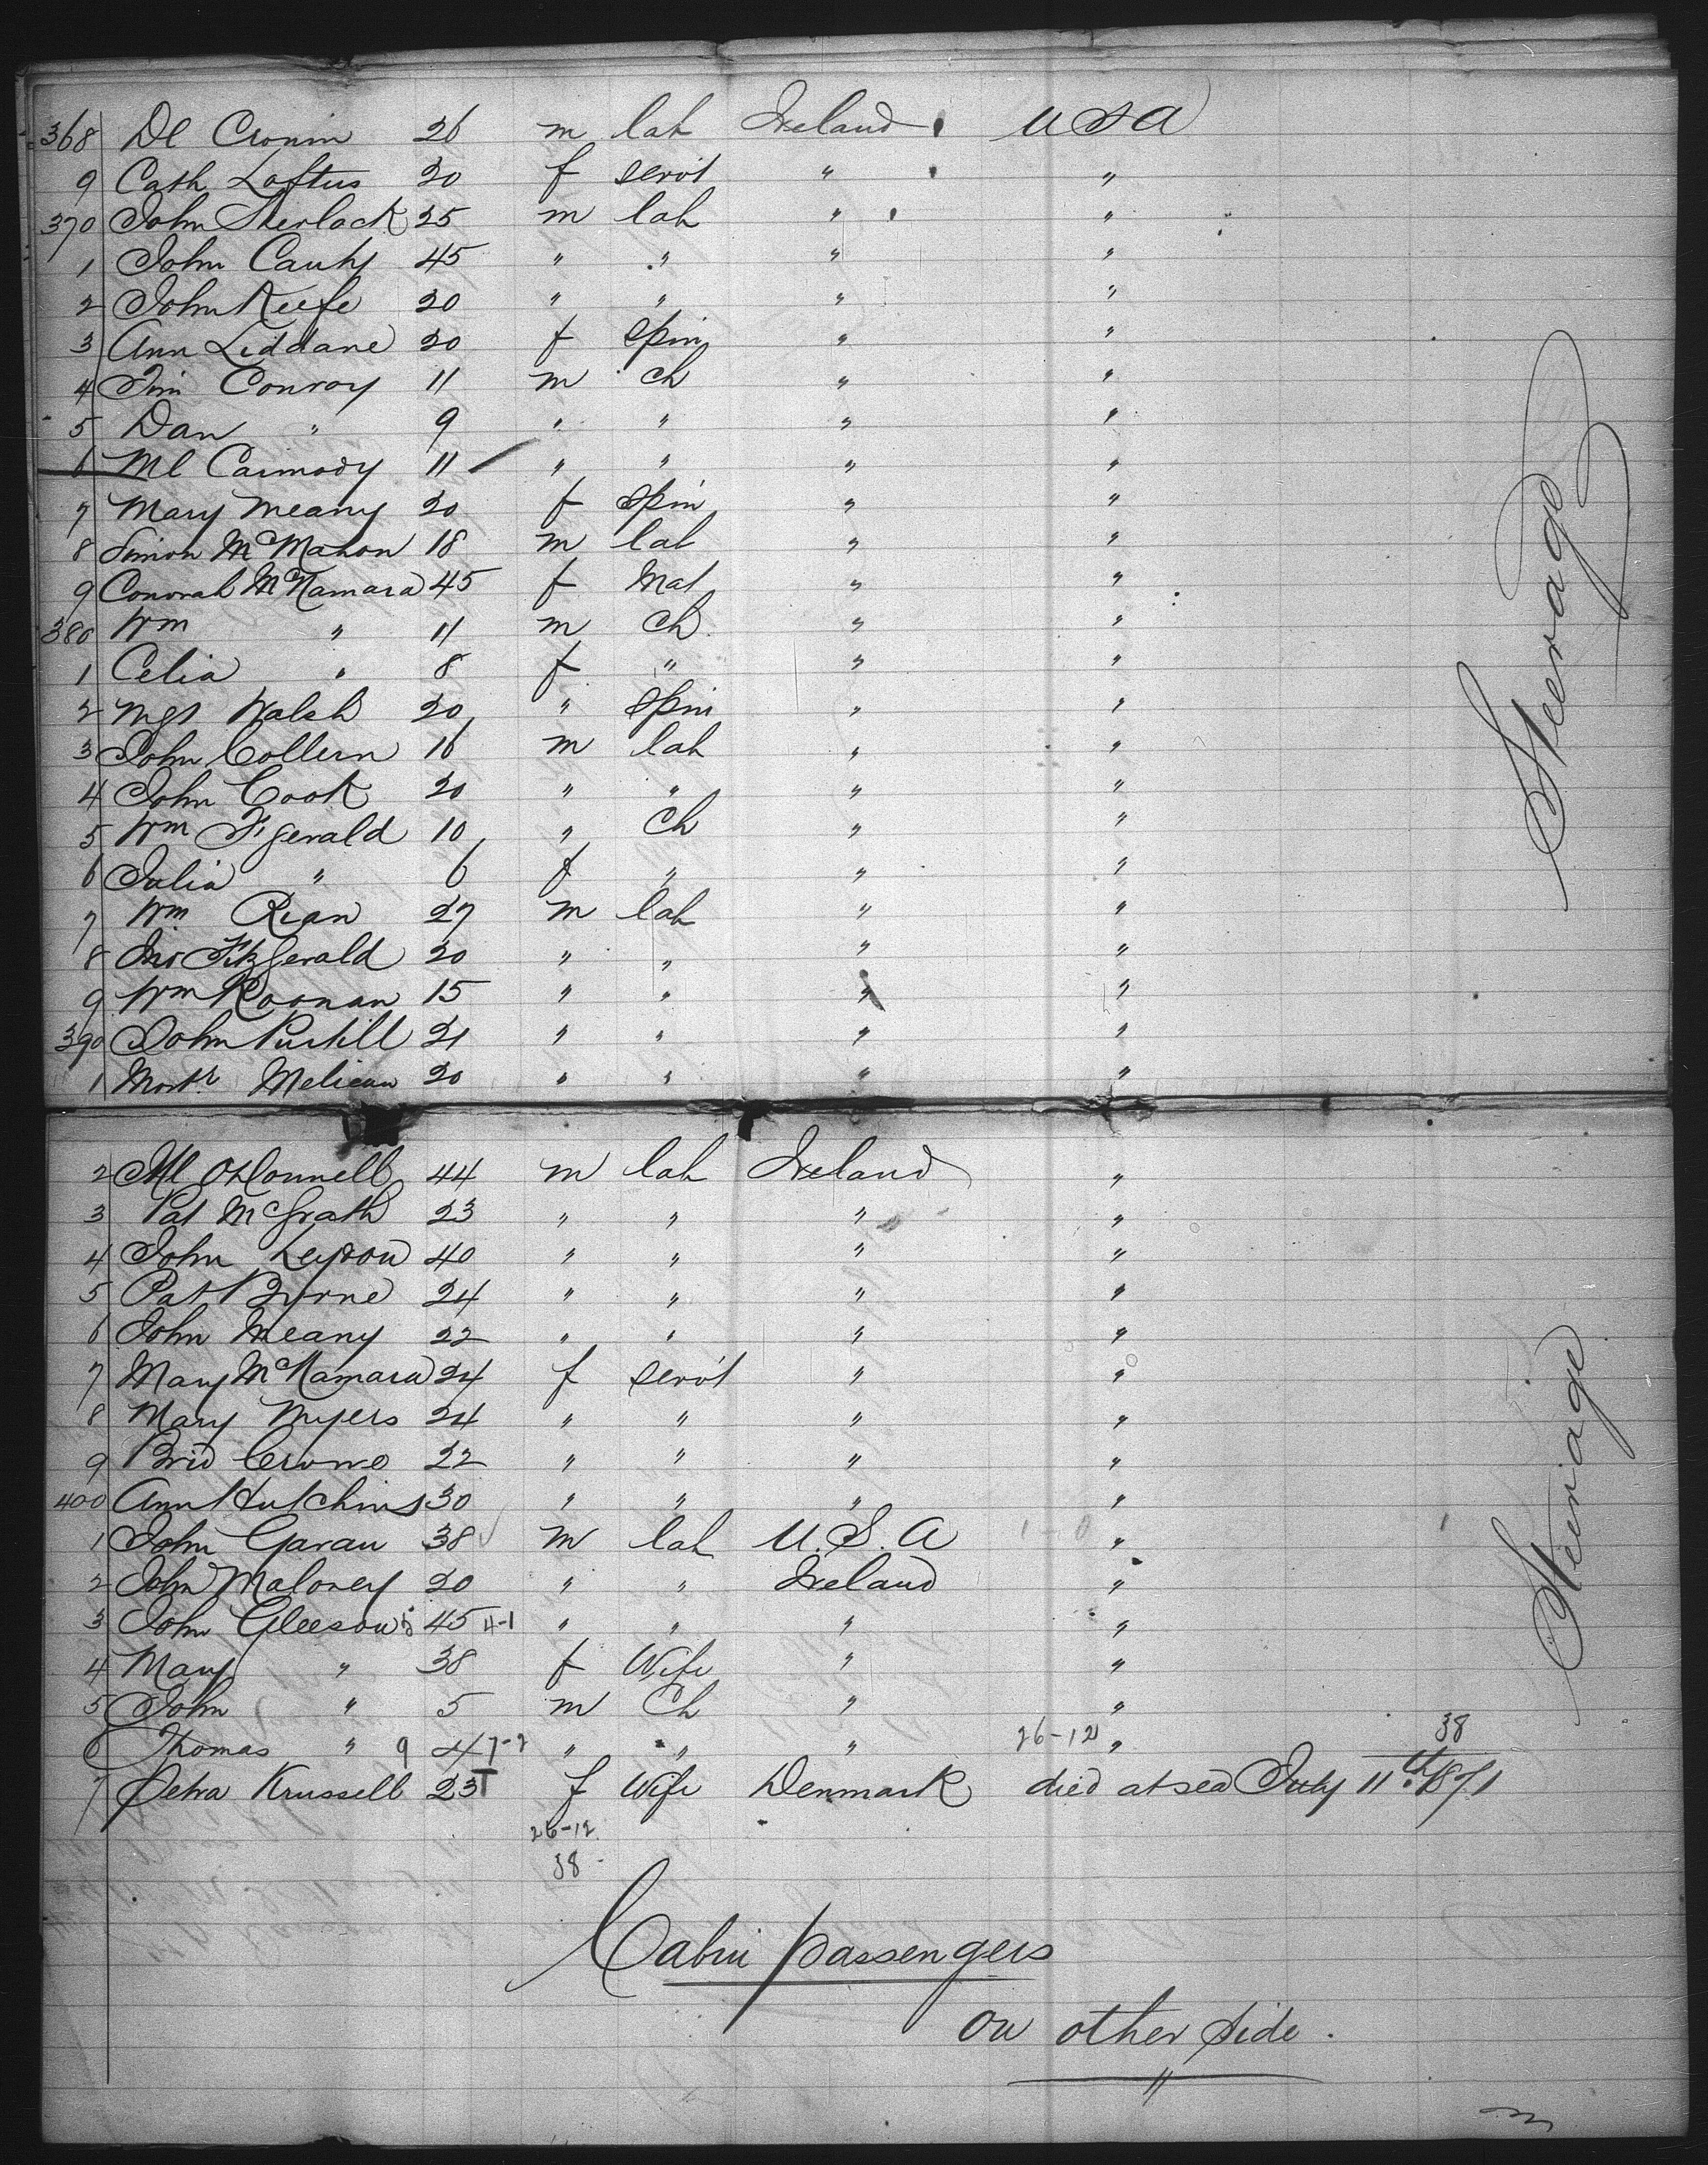 368 Dl Cronin 26 m lab Ireland USA
9 Cath Loftus 20 f servt " "
370 John Sherlock 25 m lab " "
1 John Cauty 45 " " " "
2 John Keefe 20 " " " "
3 Ann Liddane 20 f Spin " "
4 Tim Conroy 11 m ch " "
5 Dan " 9 " " " "
6 Ml Carmody 11 " " " "
7 Mary Meany 20 f Spin " "
8 Simon McMahon 18 m lab " "
9 Conorah McNamara 45 f Mat " "
380 Wm " 11 m Ch " "
1 Celia " 8 f " " "
2 Mgt Walsh 20 " Spin " "
3 John Collern 16 m lab " "
4 John Cook 20 " " " "
5 Wm Fgerald 10 " Ch " "
6 Julia " 6 f " " "
7 Wm Rian 27 m lab " "
8 Jno Fitzgerald 20 " " " "
9 Wm Roonan 15 " " " "
390 John Purtill 21 " " " "
1 Mortr Melican 20 " " " "
Steerage
2 Ml O'Connell 44 m lab Ireland "
3 Pat McGrath 23 " " " "
4 John Leydon 40 " " " "
5 Pat Byrne 24 " " " "
6 John Meany 22 " " " "
7 Mary McNamara 24 f servt " "
8 Mary Myers 24 " " " "
9 Brid Crowe 22 " " " "
400 Ann Hutchins 30 " " " "
1 John Garau 38 m lab U.S.A 1-0 " 1
2 John Maloney 20 " " Ireland "
3 John Gleeson 45 4-1 " " " "
4 Mary " 38 f Wife " "
5 John " 5 m Ch " "
6 Thomas " 9 4 7-2 " " " 26-12 " 38
7 Petra Krussell 23 f Wife Denmark died at sea July 11th 1871
Steerage
26-12
38
Cabin passengers
on other side.
"